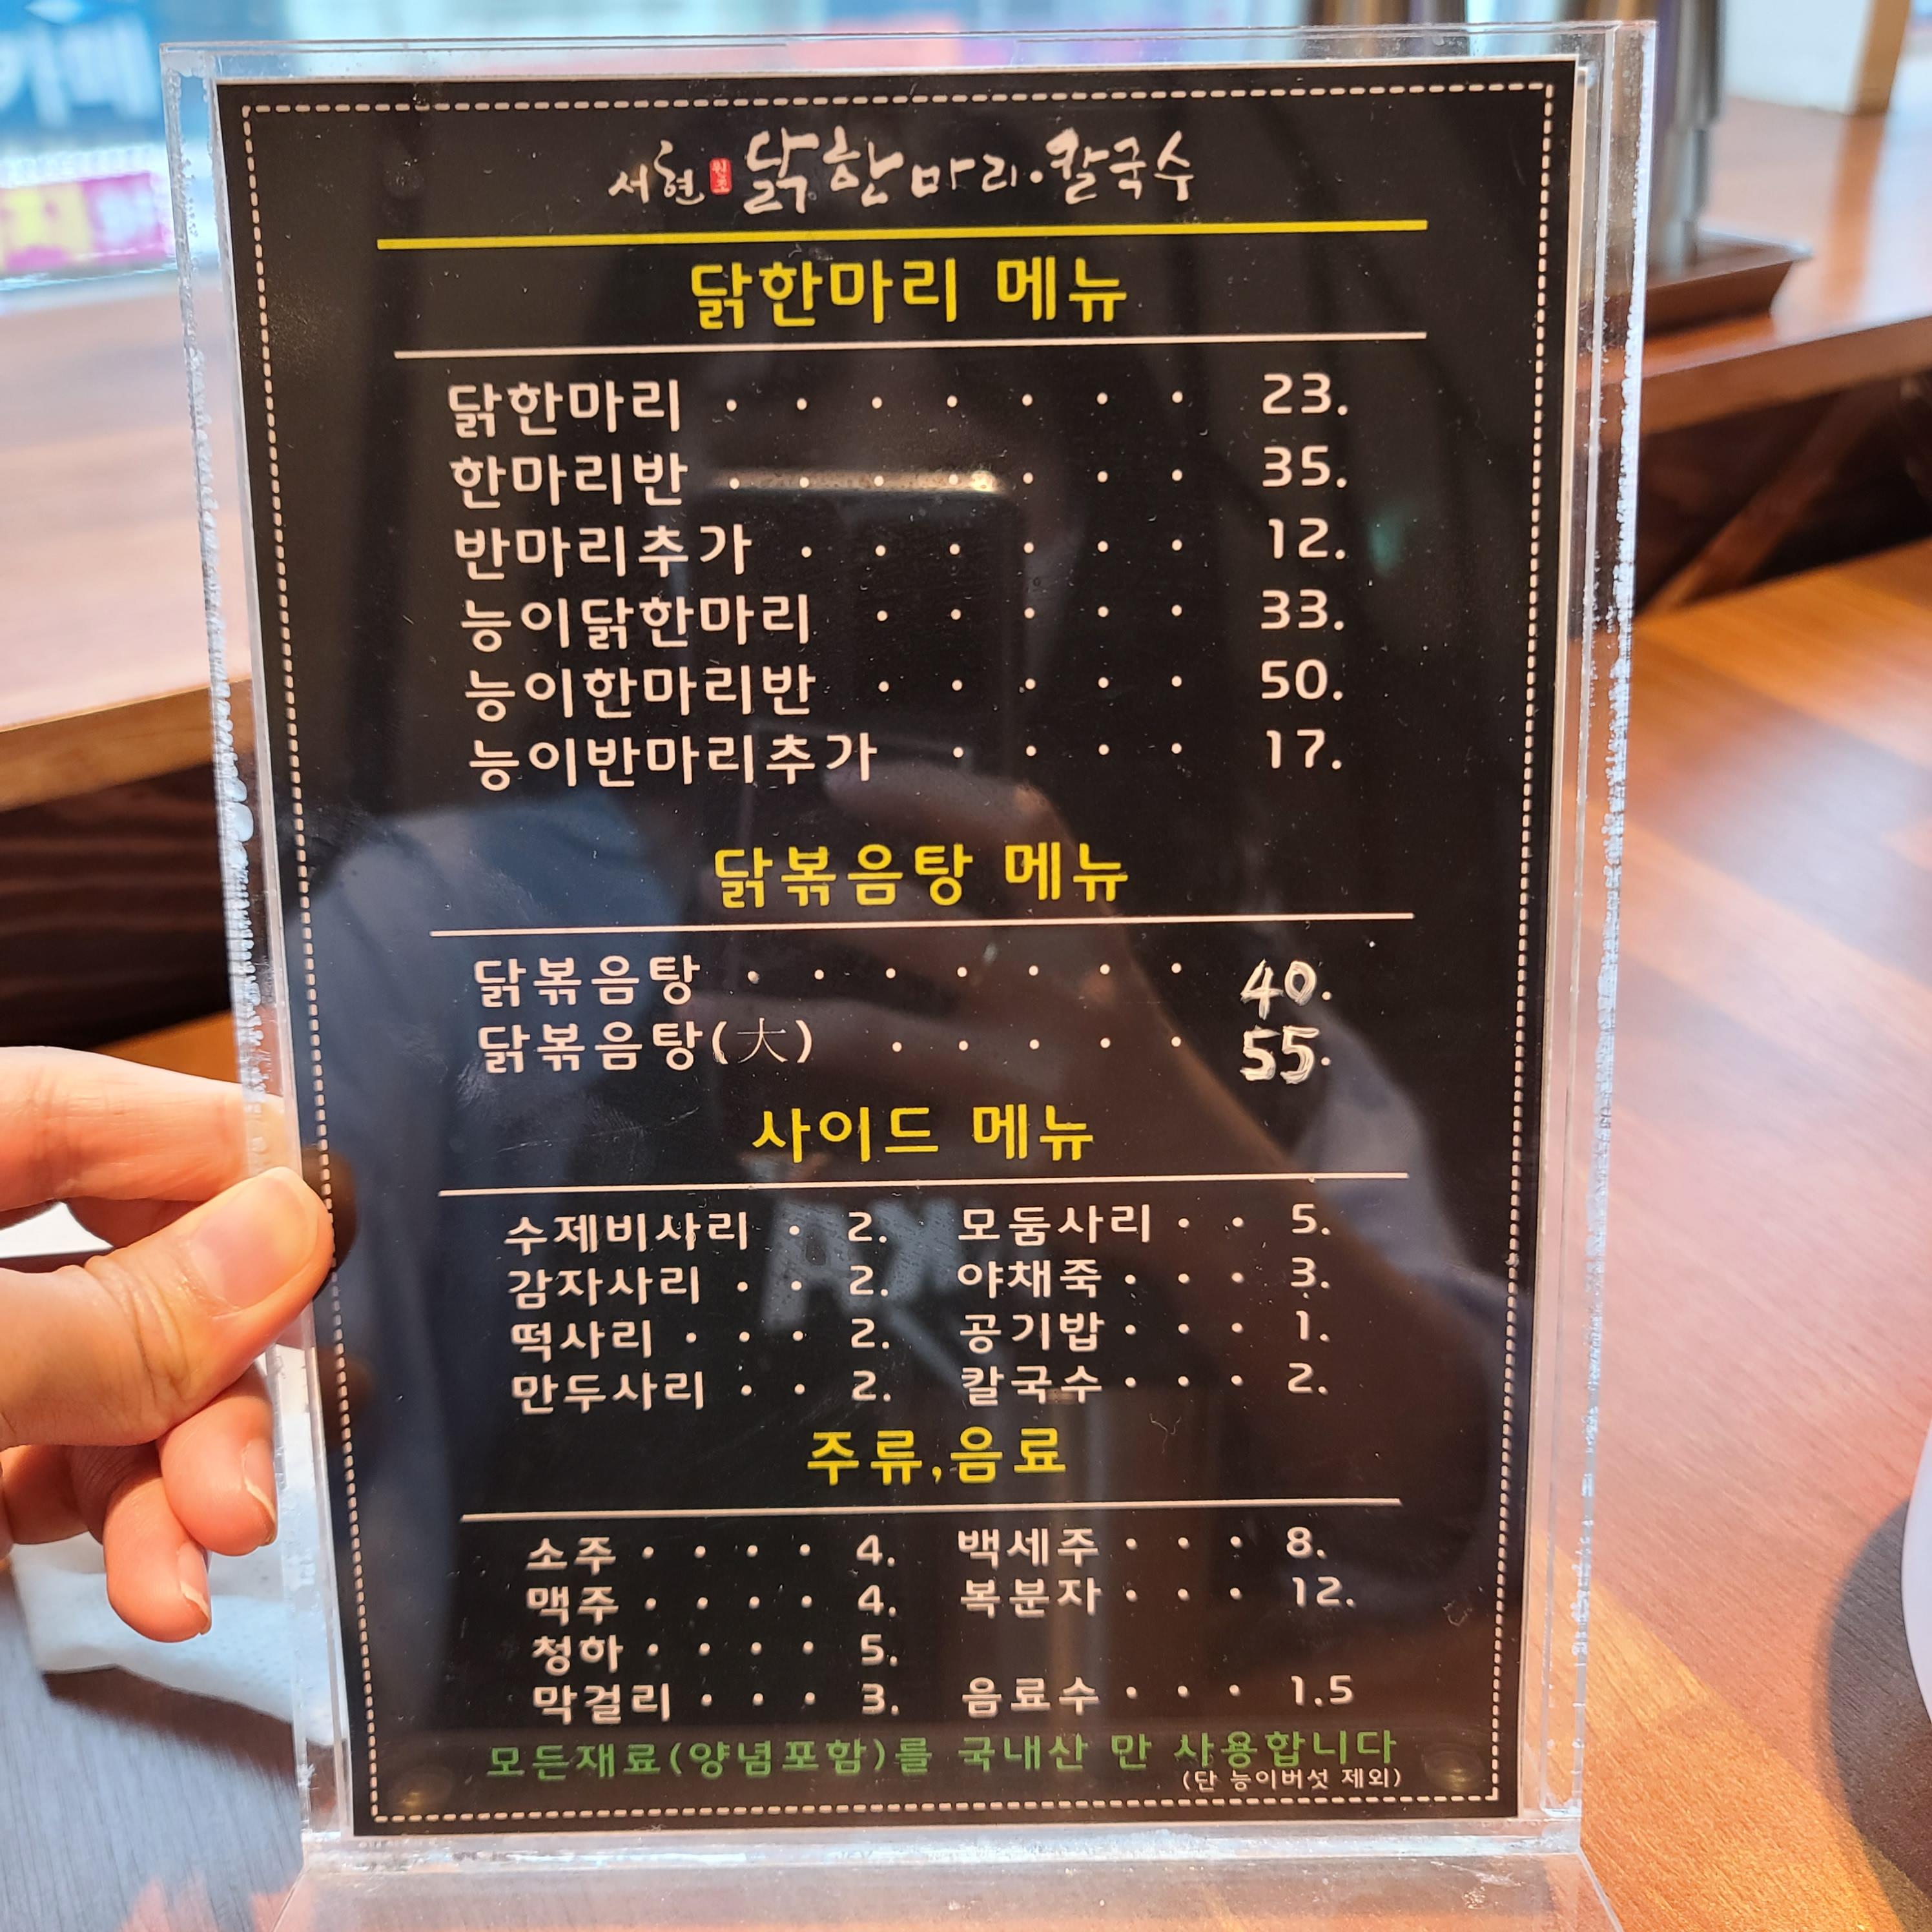 카페
서현 원조 닭한마리·칼국수
닭한마리 메뉴
닭한마리 · · · · · · · 23.
한마리반 · · · · · · · 35.
반마리추가 · · · · · · 12.
능이닭한마리 · · · · · 33.
능이한마리반 · · · · · 50.
능이반마리추가 · · · · 17.
닭볶음탕 메뉴
닭볶음탕 · · · · · · · 40.
닭볶음탕(大) · · · · · 55.
사이드 메뉴
수제비사리 · 2. 모둠사리 · · 5.
감자사리 · · 2. 야채죽 · · · 3.
떡사리 · · · 2. 공기밥 · · · 1.
만두사리 · · 2. 칼국수 · · · 2.
주류,음료
소주 · · · · 4. 백세주 · · · 8.
맥주 · · · · 4. 복분자 · · · 12.
청하 · · · · 5.
막걸리 · · · 3. 음료수 · · · 1.5
모든재료(양념포함)를 국내산 만 사용합니다
(단 능이버섯 제외)